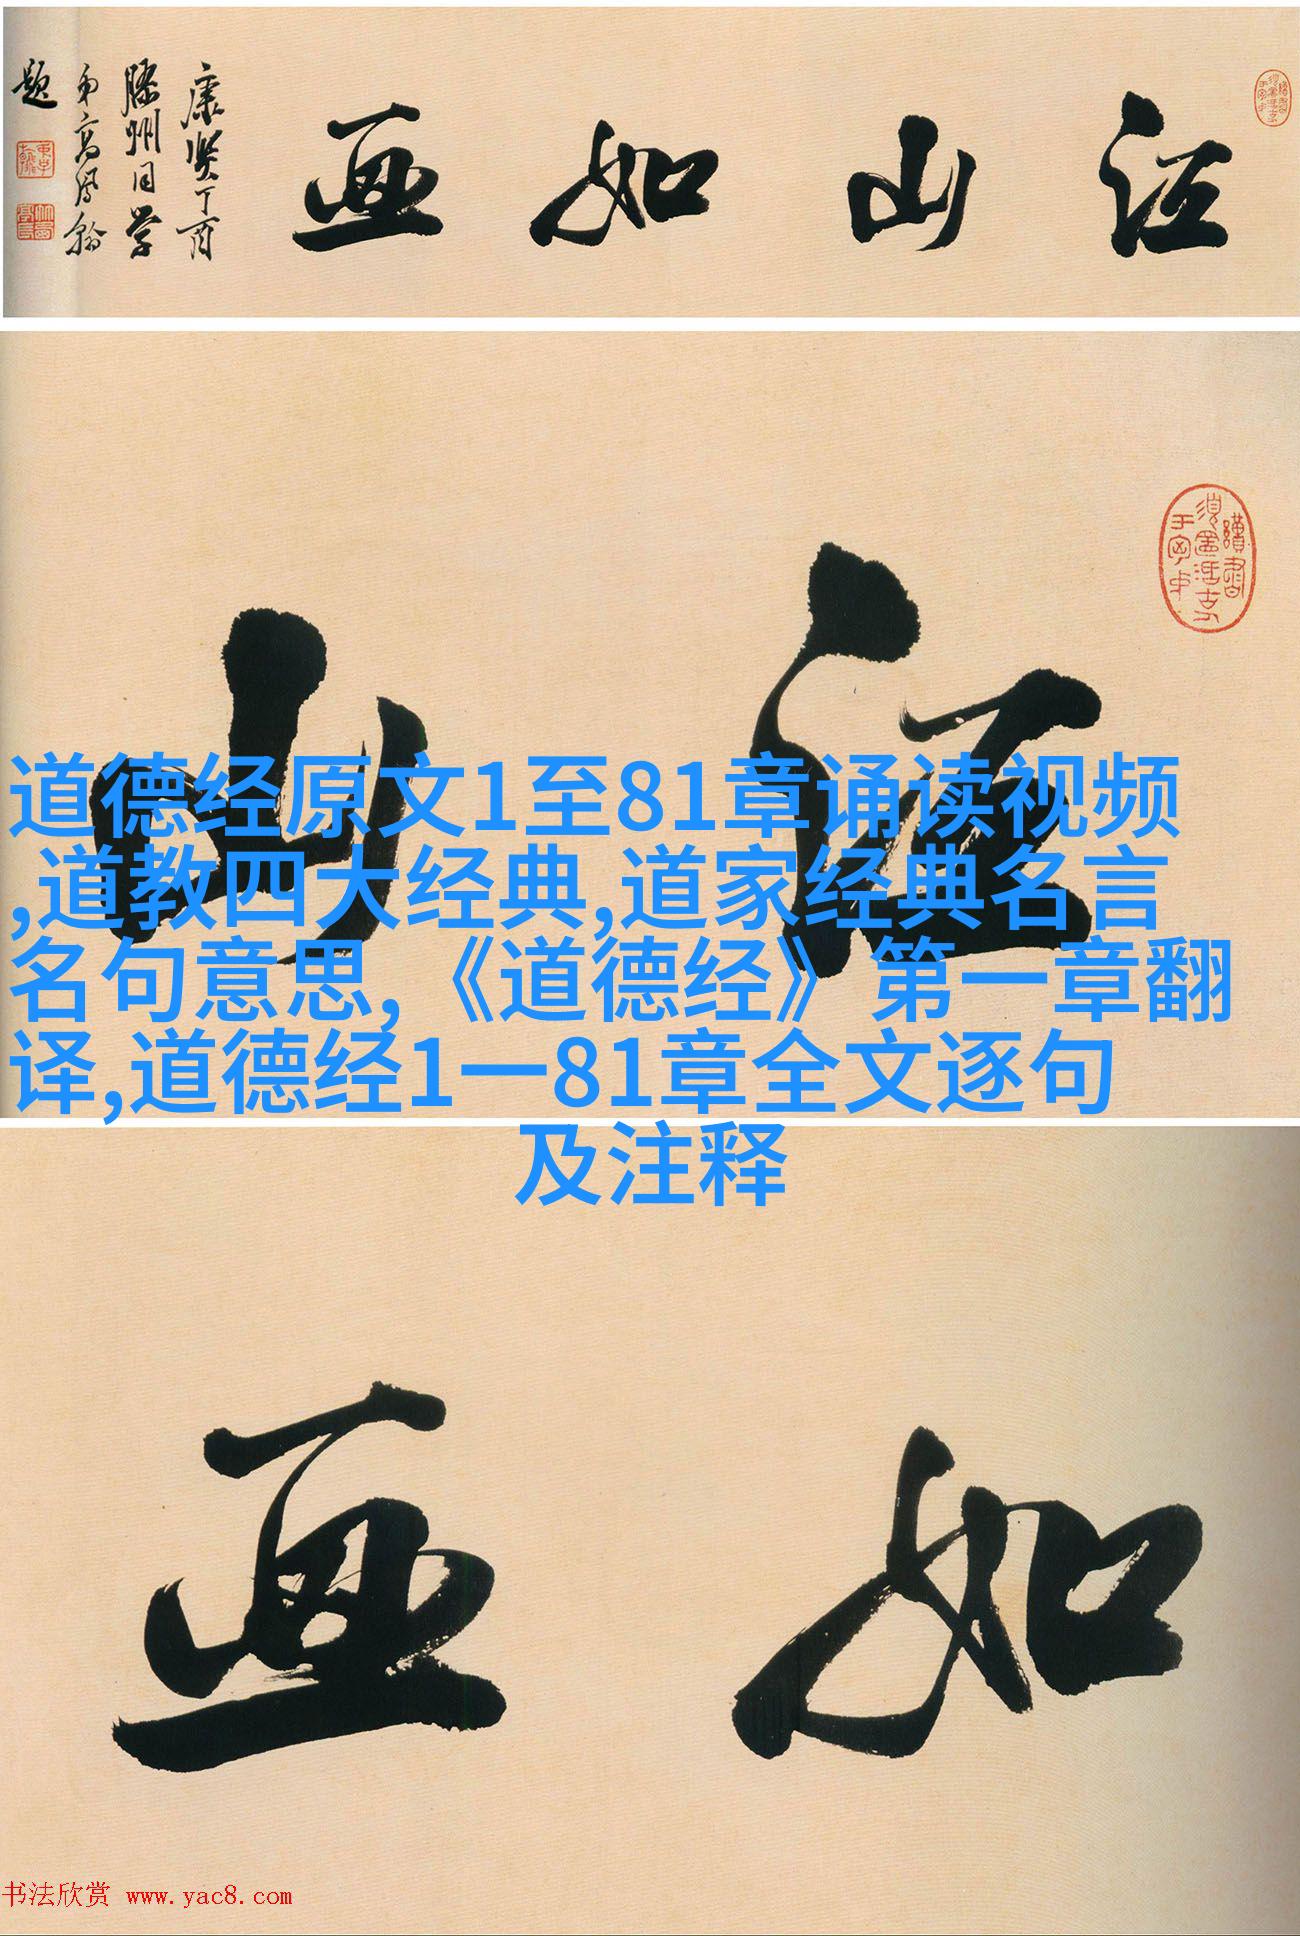 江山如画
康熙丁酉
滕州同学
弟高凤翰
题
江山
如画
道德经原文1至81章诵读视频
,道教四大经典,道家经典名言
名句意思,《道德经》第一章翻
译,道德经1一81章全文逐句
及注释
书法欣赏 www.yac8.com